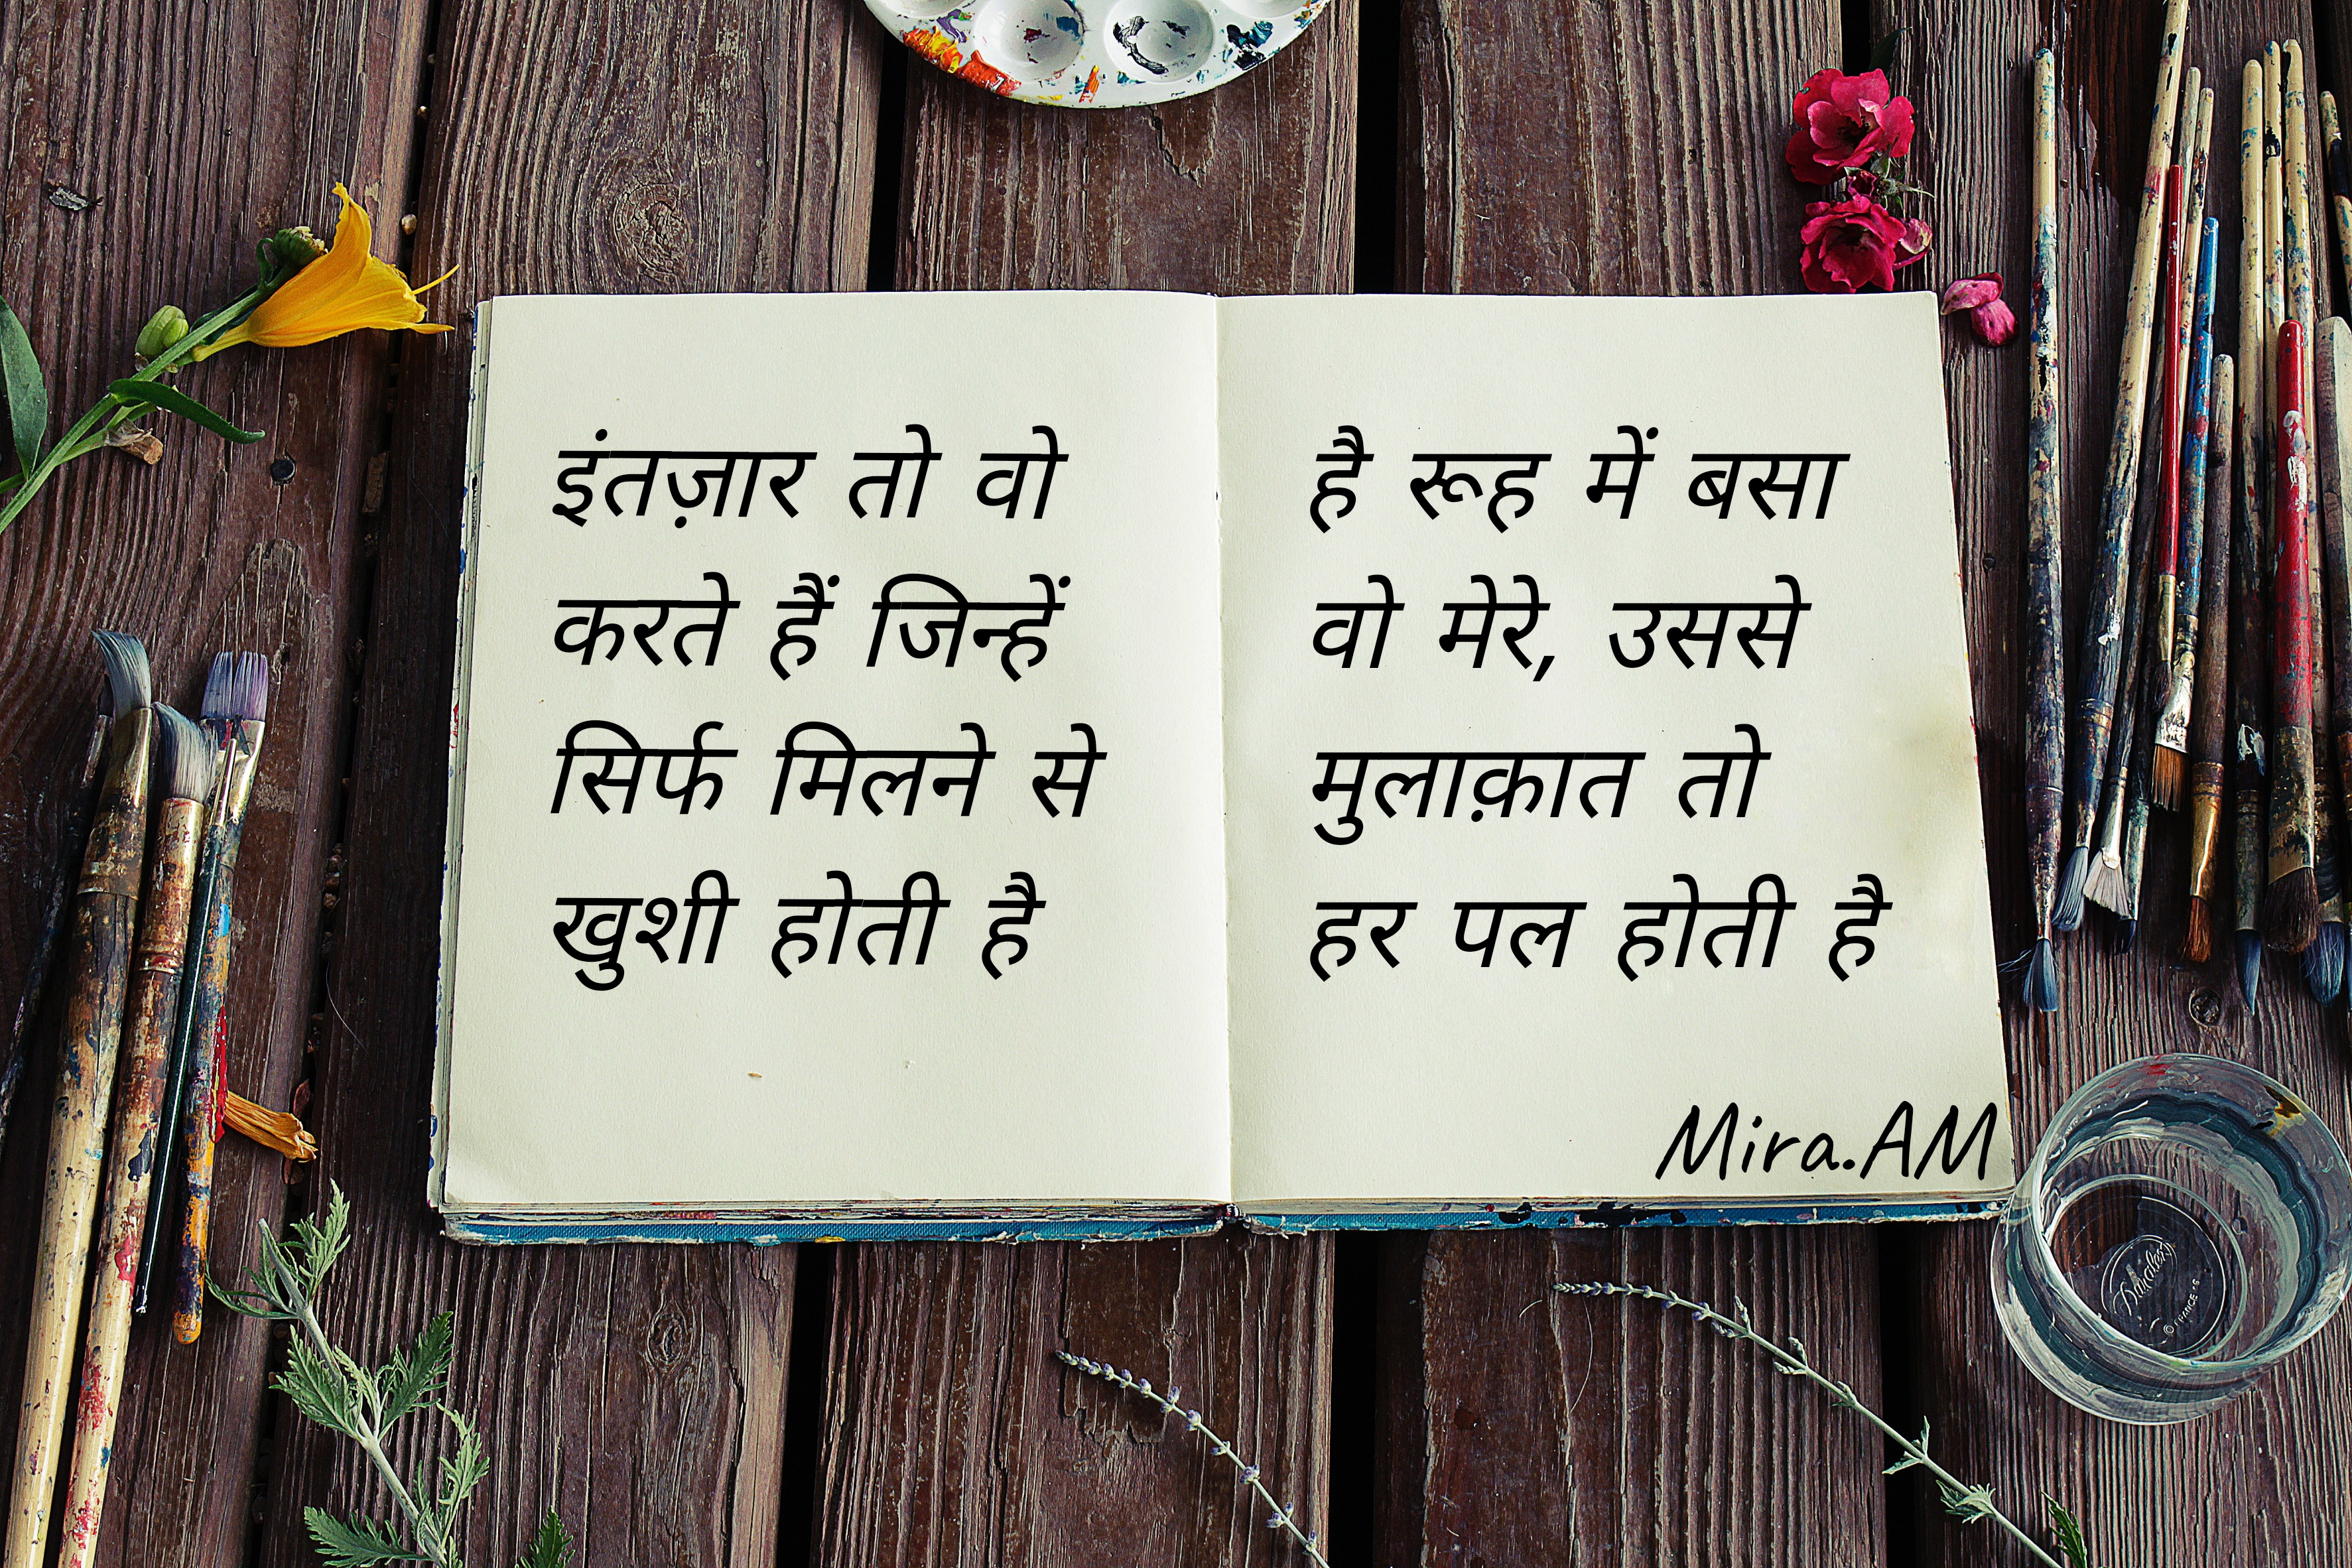 इंतज़ार तो वो
करते हैं जिन्हें
सिर्फ मिलने से
खुशी होती है
है रूह में बसा
वो मेरे, उससे
मुलाक़ात तो
हर पल होती है
Mira.AM